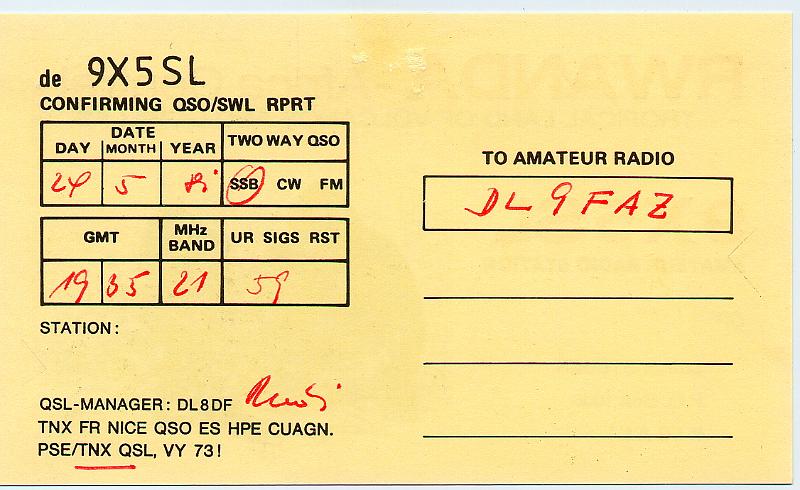 de 9X5SL
CONFIRMING QSO/SWL RPRT
DATE
DAY MONTH YEAR TWO WAY QSO
24 5 SSB CW FM
GMT MHz BAND UR SIGS RST
19 35 21 59
STATION:
QSL-MANAGER: DL8DF Rudi
TNX FR NICE QSO ES HPE CUAGN.
PSE/TNX QSL, VY 73!
TO AMATEUR RADIO
DL9FAZ